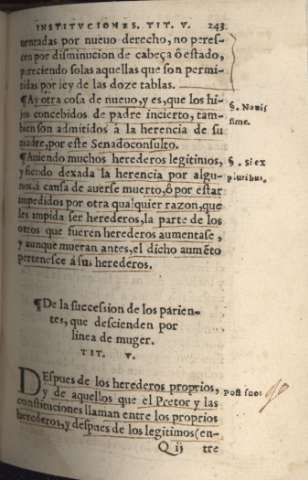 INSTITVCIONES. TIT. V. 243
uentadas por nueuo derecho, no peresen por disminucion de cabeça ô estado,
pareciendo solas aquellas que son permitidas por ley de las doze tablas.
¶Ay otra cosa de nueuo, y es, que los hijos concebidos de padre incierto, tambien son admitidos à la herencia de su
madre, por este Senadoconsulto.
§. Nouissime.
¶Auiendo muchos herederos legitimos,
y siendo dexada la herencia por algunos à causa de auerse muerto, ô por estar
impedidos por otra qualquier razon, que
les impida ser herederos, la parte de los
otros que fueren herederos aumentase,
y aunque mueran antes, el dicho aumẽto
pertenesce á sus herederos.
§. si ex
pluribus.
¶De la succession de los parientes, que descienden por
linea de muger.
TIT. V.
DEspues de los herederos proprios,
y de aquellos que el Pretor y las
constituciones llaman entre los proprios
herederos, y despues de los legitimos (en-
post suos
Q ij tre